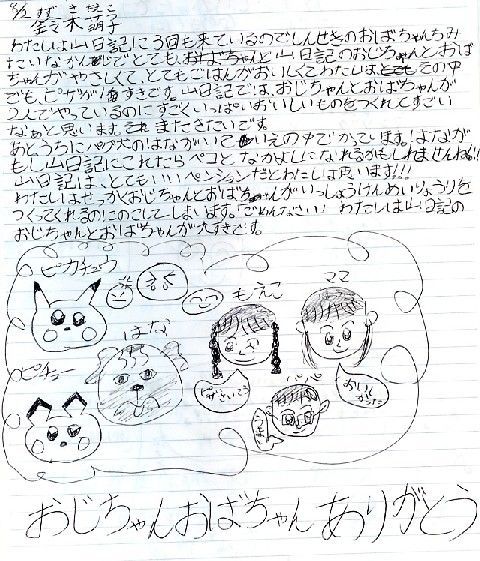 すず き
鈴木 萌子
わたしは山日記に3回も来ているのでしんせきのおばちゃんちみ
たいなかんじでとても、おばちゃんと山日記のおじちゃんと、おば
ちゃんがやさしくて、とてもごはんがおいしくてわたしは、その中
でも、ピザが大すきです。山日記では、おじちゃんとおばちゃんが
2人でやっているのにすごくいっぱいおいしいものをつくれてすごい
なぁと思います。またきたいです。
あとうちにパグ犬のはながいていえの中でかっています。はなが
もし山日記にこれたらペコと、なかよしになれるかもしれませんね!!
山日記は、とてもいいペンションだとわたしは思います!!!
わたしはせっかくおじちゃんとおばちゃんがいっしょうけんめいりょうりを
つくってくれるのにのこしてしまいます。「ごめんなさい」 わたしは山日記の
おじちゃんとおばちゃんが大すきです。
ピカチュウ
もえこ
ママ
はな
ピチュー
パパ
おいしかった
おじちゃんおばちゃんありがとう